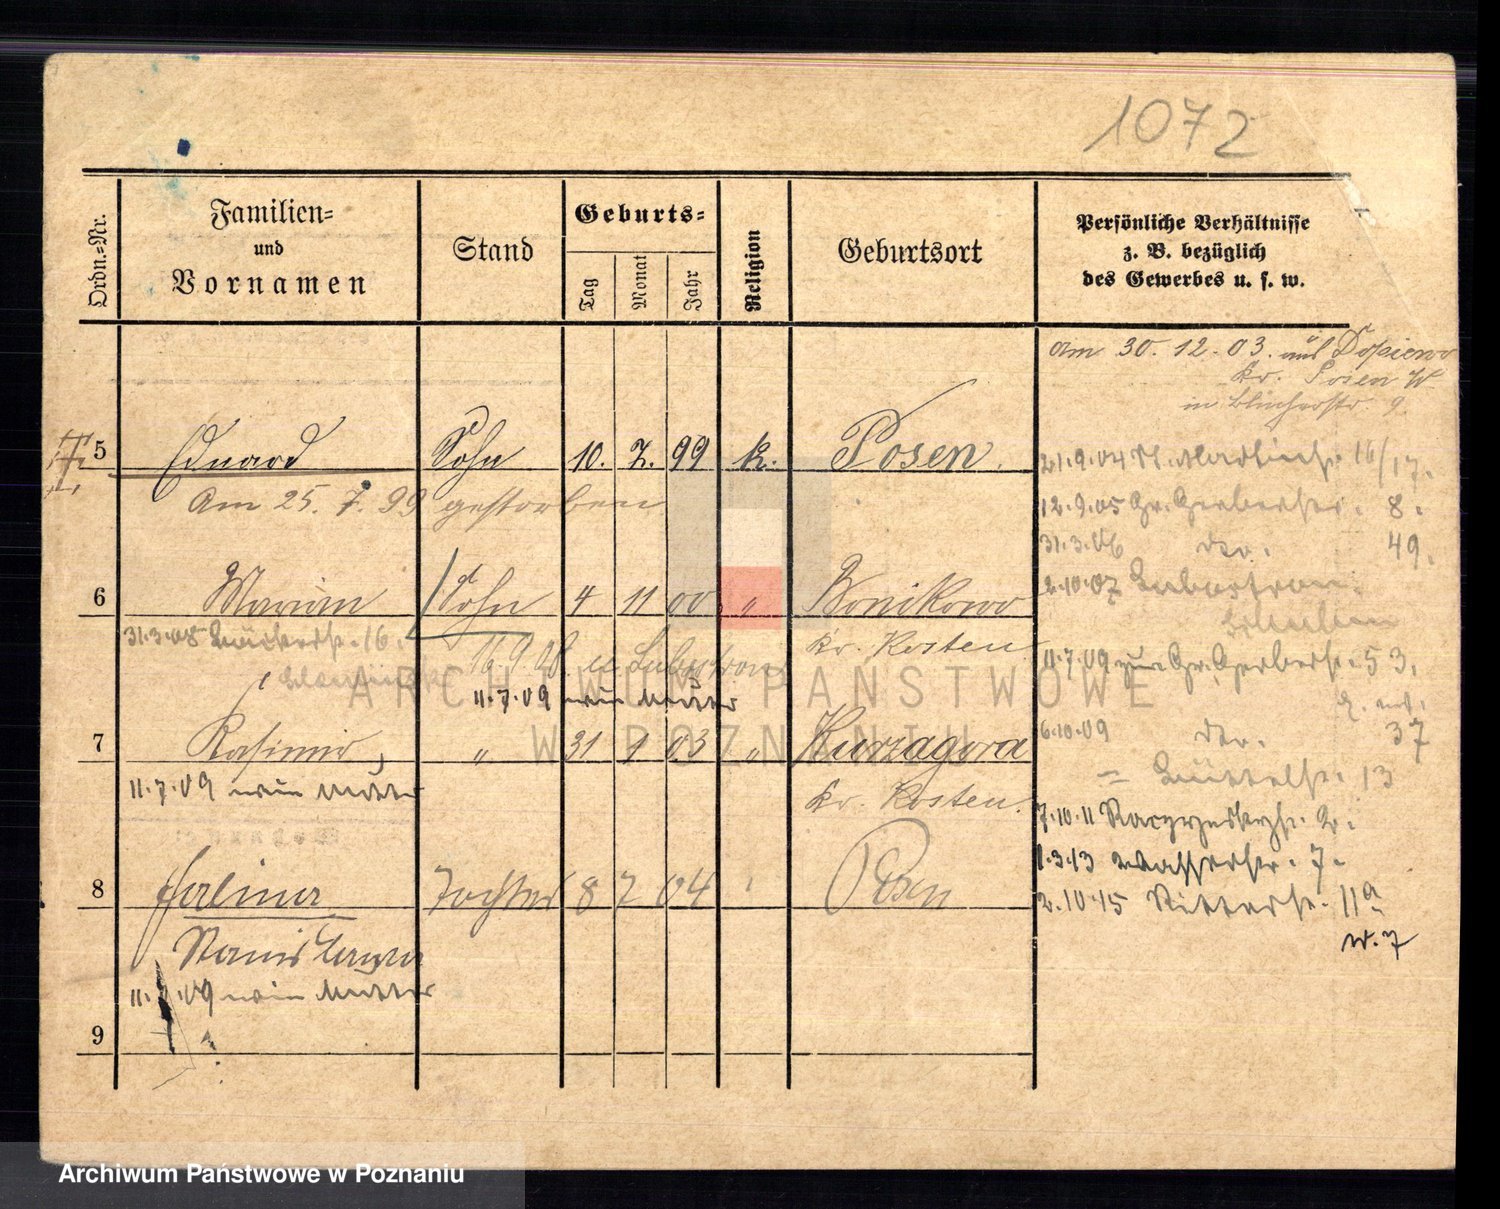 1072
Ordn.=Nr.
Familien=
und
Vornamen
Stand
Geburts=
Tag
Monat
Jahr
Religion
Geburtsort
Persönliche Verhältnisse
z. B. bezüglich
des Gewerbes u. s. w.
am 30. 12. 03. aus Dopiewo
Kr. Posen W
in Blücherstr. 9
5 Eduard Sohn 10. 7. 99 k. Posen.
Am 25. 7. 99 gestorben
21.9.04 16/17.
12.9.05 Gr. Gerberstr. 8.
31.3.06 do. 49.
6 Marian Sohn 4 11 00 " Bonikowo
2.10.07
31.3.08 16.
Kr. Kosten
16.9.08
11.7.09 Gr. Gerberstr. 53.
11.7.09 wie Mutter
7 Kasimir, " 31 1 03 " Kurzagora
6.10.09 do. 37
11.7.09 wie Mutter
Kr. Kosten.
13
7.10.11 2.
1.3.13 Wasserstr. 7.
8 Halina Tochter 8 7 04 Posen
2.10.15 Ritterstr. 11a
W. 7
Stanislawa
11.7.09 wie Mutter
9
ARCHIWUM PAŃSTWOWE
W POZNANIU
Archiwum Państwowe w Poznaniu